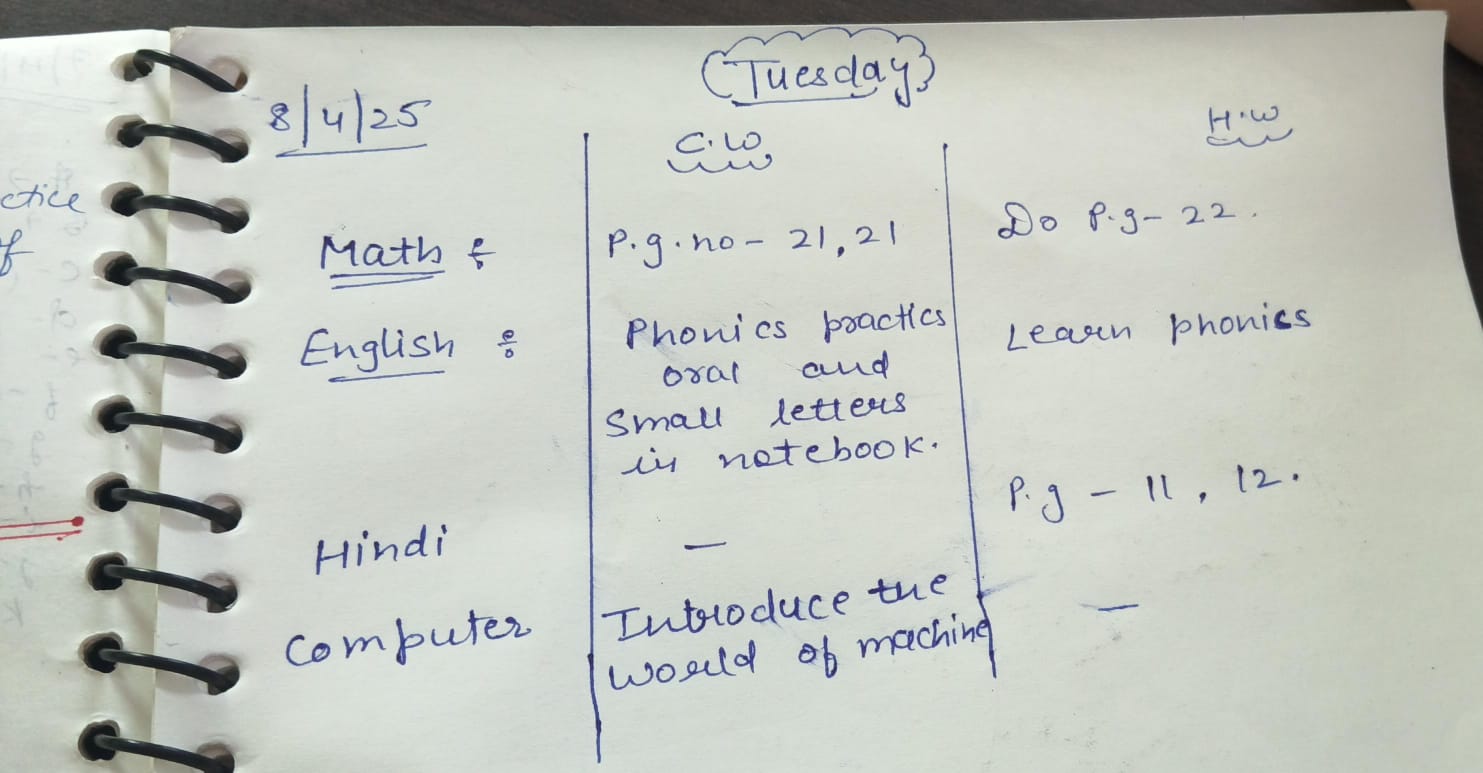 Tuesday
8/4/25
C.W
H.W
Math : P.g.no - 21, 21 Do P.g - 22.
English : Phonics practics Learn phonics
oral and
small letters
in notebook.
Hindi - P.g - 11, 12.
Computer Introduce the -
world of machine
ctice
f